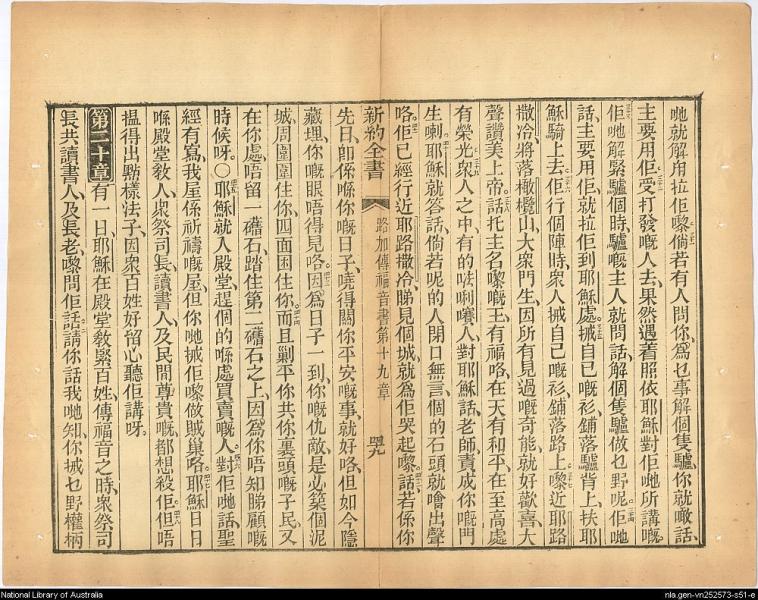 哋就解甪拉佢嚟倘若有人問你爲乜事解個隻驢你就噉話
主要用佢受打發嘅人去果然遇著照依耶穌對佢哋所講嘅
佢哋解緊驢個時驢嘅主人就問話解個隻驢做乜野呢佢哋
話主要用佢就拉佢到耶穌處搣自己嘅衫鋪落驢背上扶耶
穌騎上去佢行個陣時衆人搣自己嘅衫鋪落路上嚟近耶路
撒冷將落橄欖山大衆門生因所有見過嘅奇能就好歡喜大
聲讚美上帝話托主名嚟嘅王有福咯在天有和平在至高處
有榮光衆人之中有的㗎唎嚷人對耶穌話老師責成你嘅門
生喇耶穌就答話倘若呢的人閉口無言個的石頭就噲出聲
咯佢已經行近耶路撒冷睇見個城就爲佢哭起嚟話若係你
新約全書 路加傳福音書第十九章
先日卽係喺你嘅日子曉得關你平安嘅事就好咯但如今隱
藏埋你嘅眼唔得見咯因爲日子一到你嘅仇敵是必築個泥
城周圍圍住你四面困住你而且剿平你共你裏頭嘅子民又
在你處唔留一礶石踏住第二礶石之上因爲你唔知睇顧嘅
時候呀○耶穌就入殿堂趕個的喺處買賣嘅人對佢哋話聖
經有寫我屋係祈禱嘅屋但你哋搣佢嚟做賊巢咯耶穌日日
喺殿堂敎人衆祭司長讀書人及民間尊貴嘅都想殺佢但唔
揾得出點樣法子因衆百姓好留心聽佢講呀
第二十章有一日耶穌在殿堂敎緊百姓傳福音之時衆祭司
長共讀書人及長老嚟問佢話請你話我哋知你搣乜野權柄
National Library of Australia
nla.gen-vn252573-s51-e